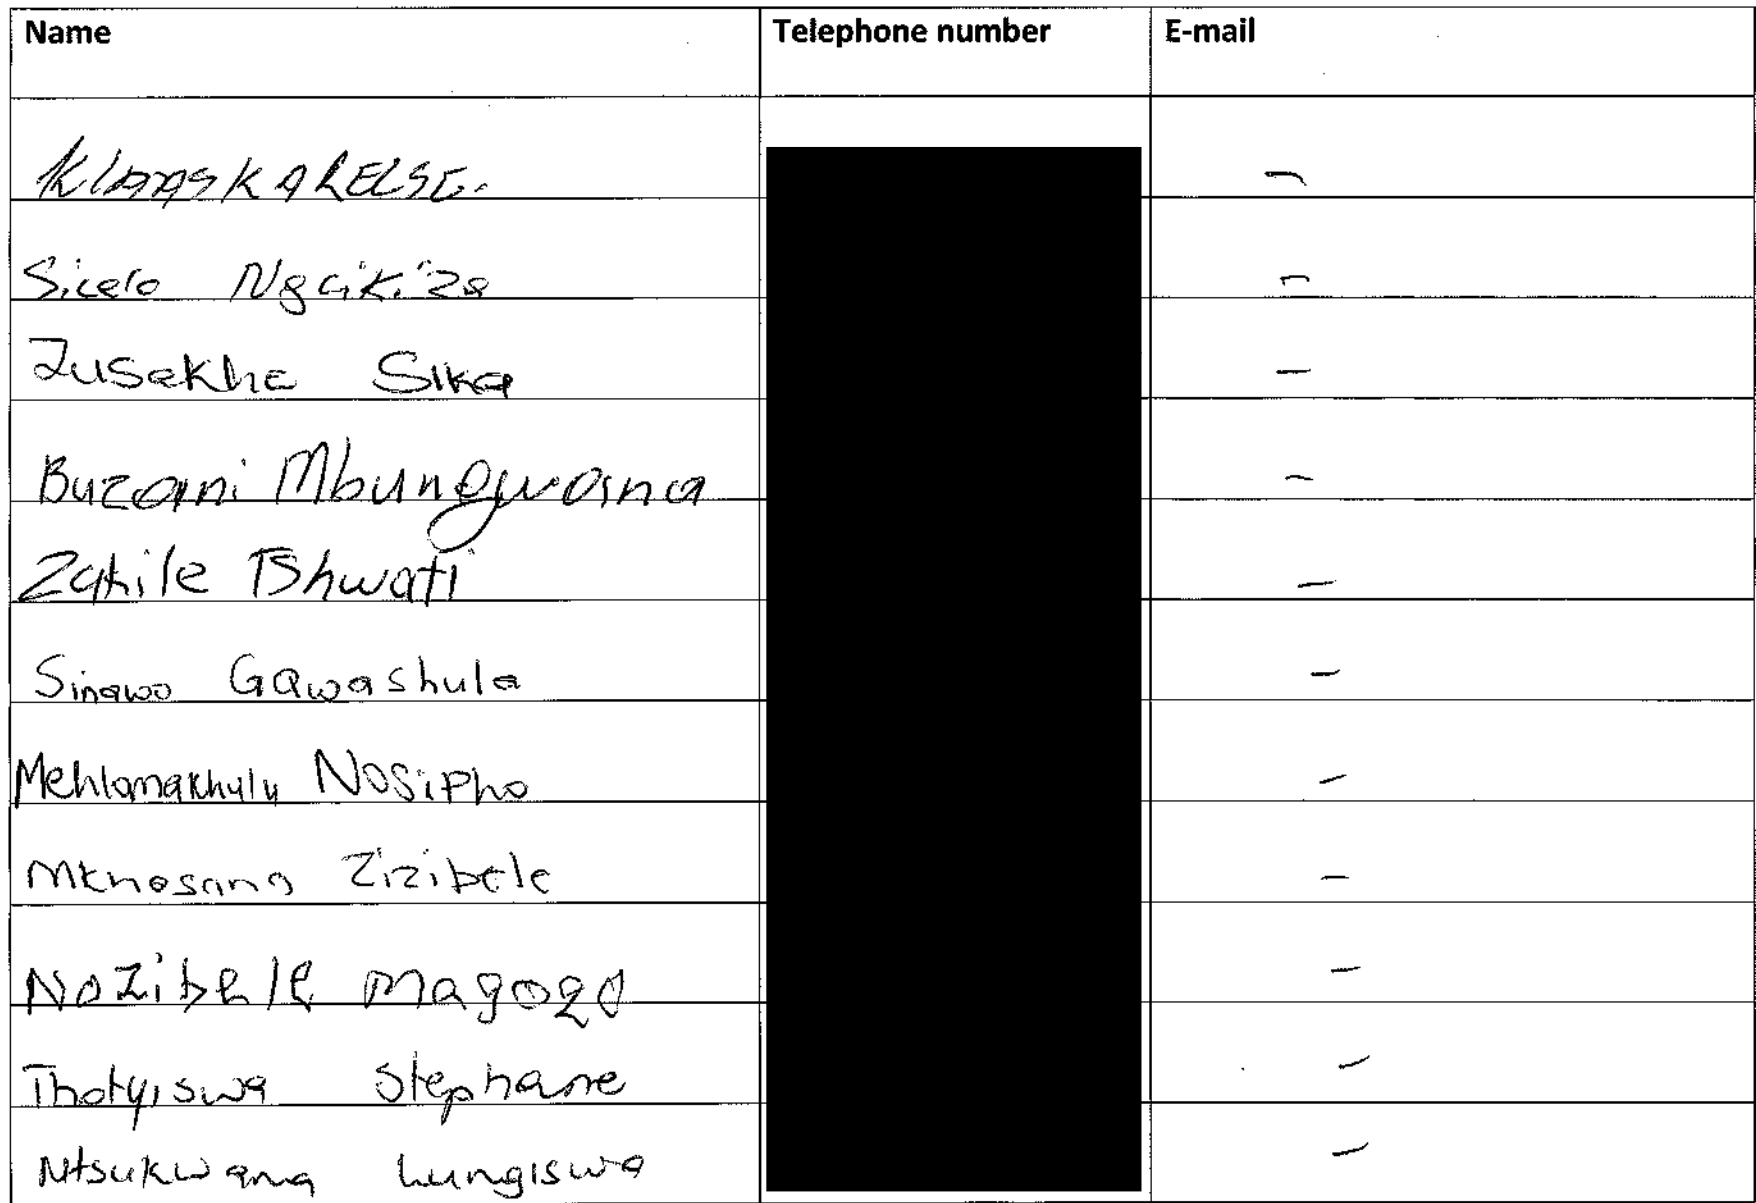 Name Telephone number E-mail
Klaas KARELSE. -
Sicelo Ngcikiza -
Zusakhe Sika -
Buzani Mbungwana -
Zakile Tshwati -
Sinawo Gawashula -
Mehlomakhulu Nosipho -
Zizibele -
Nozibele Magogo -
Thotyiswa Stephane -
Ntsukwana Lungiswa -